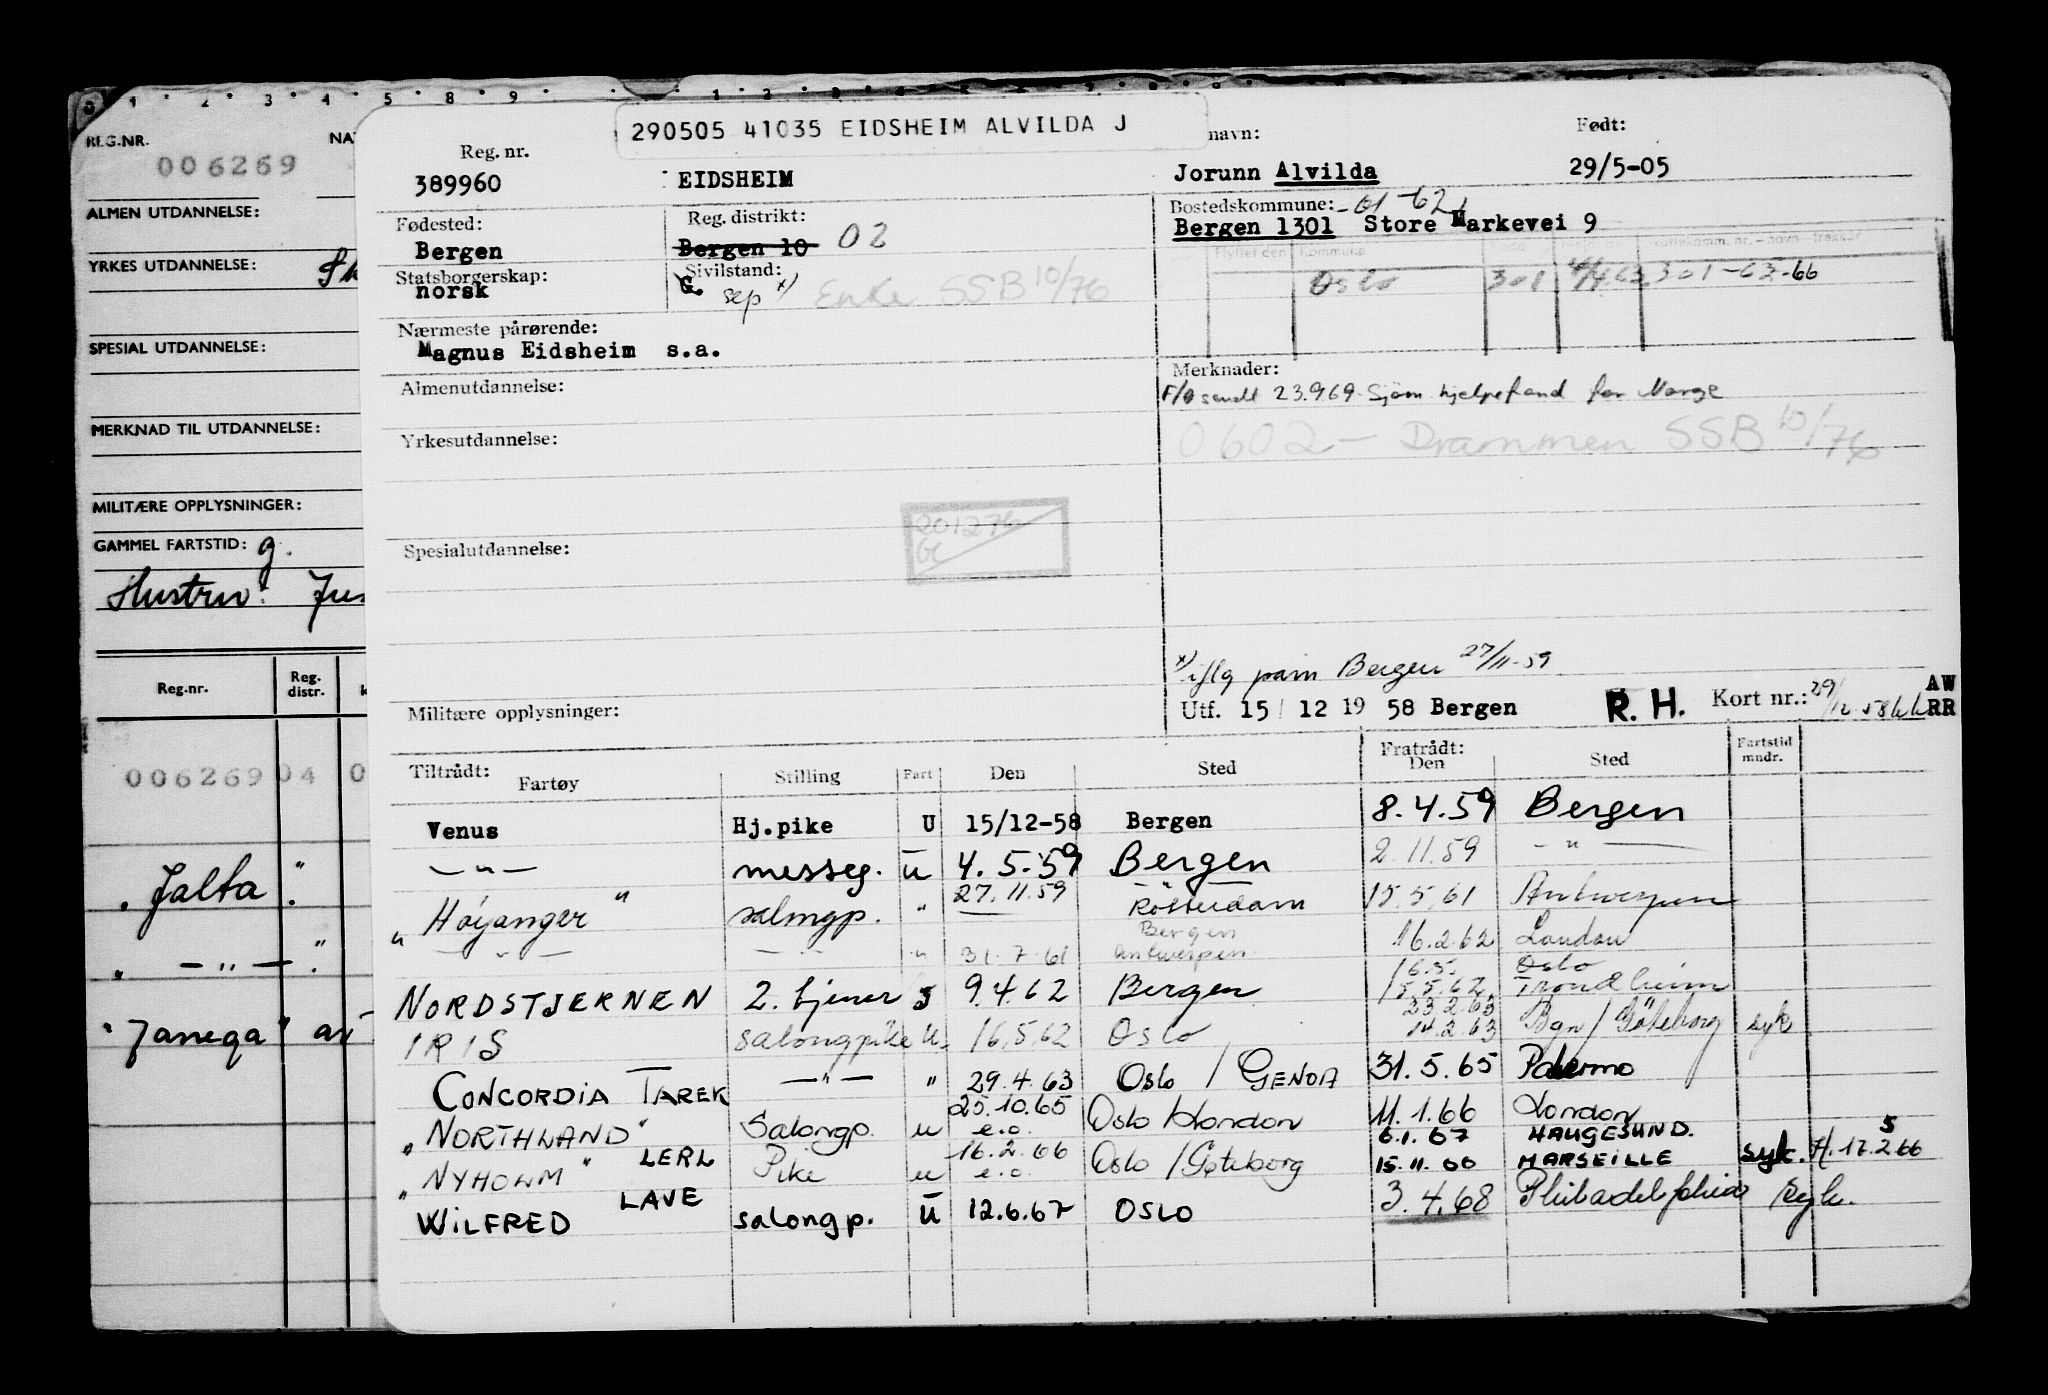 1 2 3 4 5 8 9 1 2 3 4 5 6 7 8 9
REG.NR. NA
006269
ALMEN UTDANNELSE:
YRKES UTDANNELSE:
SPESIAL UTDANNELSE:
MERKNAD TIL UTDANNELSE:
MILITÆRE OPPLYSNINGER:
GAMMEL FARTSTID: g.
Hustru:
Reg.nr. Reg. distr. k
006269 04 0
" Jalta "
" — " — "
"Janega" at
290505 41035 EIDSHEIM ALVILDA J
Reg. nr. navn: Født:
389960 EIDSHEIM Jorunn Alvilda 29/5-05
Fødested: Reg. distrikt: Bostedskommune: -61-62
Bergen Bergen 10 02 Bergen 1301 Store Markevei 9
Statsborgerskap: Sivilstand: Flyttet den Kommune
norsk G. sep x) Enke SSB 10/76 Oslo 301 4/4.63 301-65-66
Nærmeste pårørende:
Magnus Eidsheim s.a.
Almenutdannelse: Merknader:
F/O sendt 23.969. Sjøm hjelpefond for Norge
Yrkesutdannelse: 0602 - Drammen SSB 10/76
201276
Spesialutdannelse:
x) iflg påm Bergen 27/11-59
Militære opplysninger: Utf. 15/12 19 58 Bergen R. H. Kort nr.: 29/12 58 AW
RR
Tiltrådt: Fratrådt:
Fartøy Stilling Fart Den Sted Den Sted Fartstid mndr.
Venus Hj.pike U 15/12-58 Bergen 8.4.59 Bergen
— " — messeg. u 4.5.59 Bergen 2.11.59 — " —
" Høyanger " salongp. " 27.11.59 Rotterdam 15.5.61 Antwerpen
Bergen
— " — — " — " 31.7.61 Antwerpen 16.2.62 London
16.5. Oslo
NORDSTJERNEN 2. tjener 9.4.62 Bergen 15.5.62 Trondheim
23.2.63
IRIS salongpike u. 16.5.62 Oslo 14.2.63 Bgn/Göteborg syk
CONCORDIA TAREK — " — " 29.4.63 Oslo / GENOA 31.5.65 Palermo
" NORTHLAND " Salongp. u 25.10.65 e.o. Oslo London 11.1.66 London
6.1.67 HAUGESUND.
" NYHOLM " LERL Pike u 16.2.66 e.o. Oslo/Göteborg 15.11.66 MARSEILLE syk. H. 17.2.66 5
WILFRED LAVE salongp. u 12.6.67 OSLO 3.4.68 Philadelphia syk.